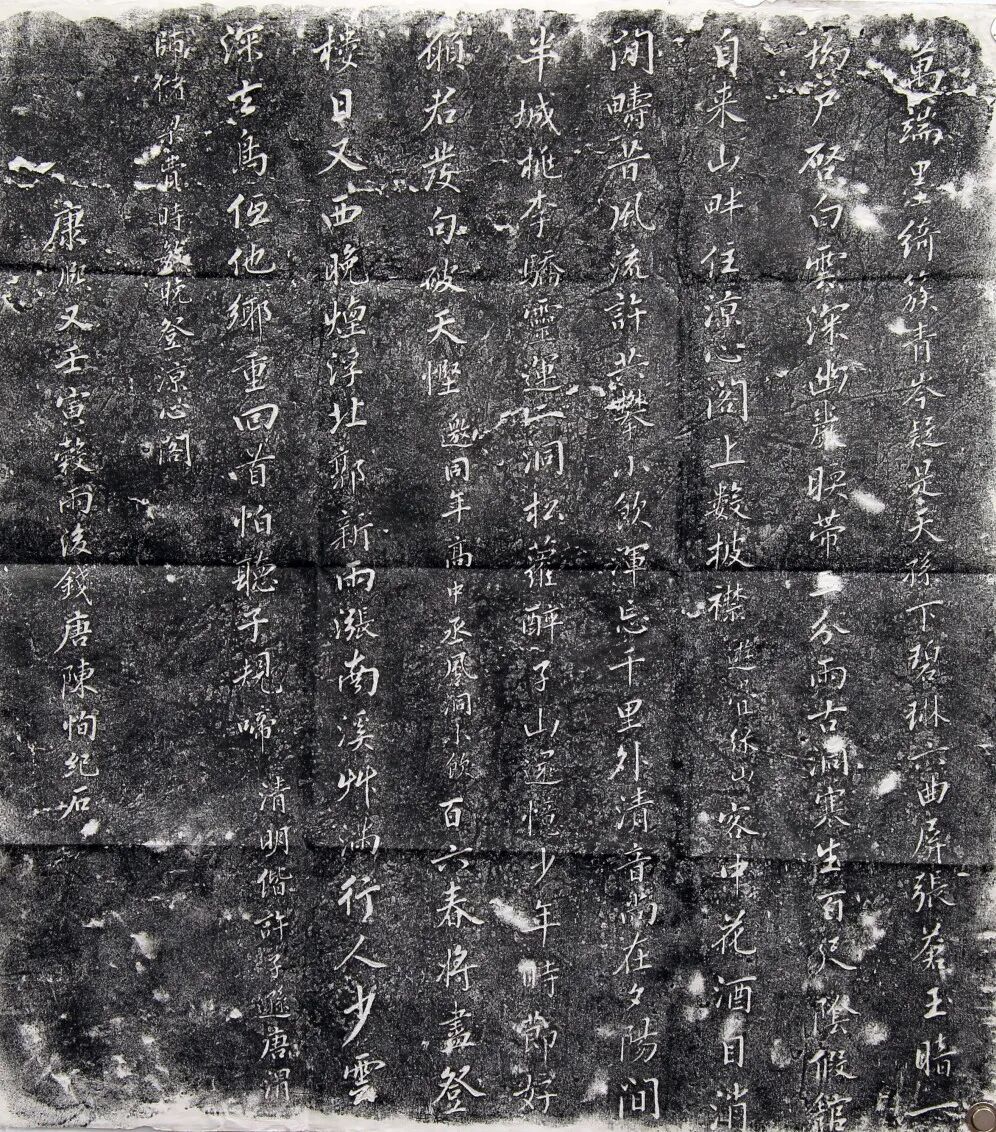 萬端墨綺簇青岑疑是天孫下碧琳六曲屏張蒼玉暗一
扃戶啓白雲深幽巖暎帶三分雨古洞寒生百尺陰假館
自来山畔住凉心閣上數披襟遊叠綵山客中花酒目消
閒疇昔風流許共攀小飲渾忘千里外清音尚在夕陽間
半城桃李驕靈運一洞松蘿醉子山還憶少年時節好
頻君發句破天慳邀同年高中丞風洞小飲百六春將盡登
樓日又西晚煙浮北郭新雨漲南溪艸滿行人少雲
深古鳥低他鄉重回首怕聽子規啼清明偕許子遜唐渭
師待時發晚登凉心閣
康熙又壬寅穀雨後錢唐陳恂紀石